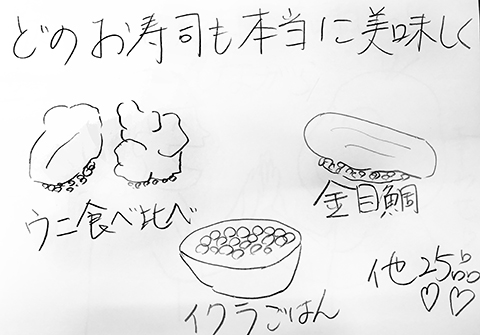 どのお寿司も本当に美味しく
ウニ食べ比べ
金目鯛
イクラごはん
他25品♡♡